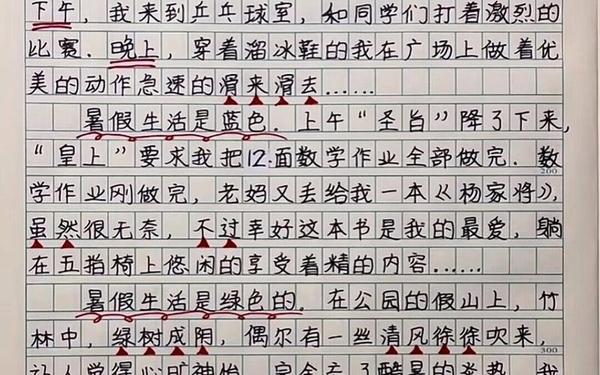 下午，我来到乒乓球室，和同学们打着激烈的
比赛．晚上，穿着溜冰鞋的我在广场上做着优
美的动作急速的滑来滑去……
暑假生活是蓝色．上午“圣旨”降了下来，
“皇上”要求我把12面数学作业全部做完．数
200
学作业刚做完，老妈又丢给我一本《杨家将》，
虽然很无奈，不过幸好这本书是我的最爱，躺
在五指椅上悠闲的享受着精的内容……
暑假生活是绿色的．在公园的假山上，竹
林中，绿树成阴，偶尔有一丝清风徐徐吹来，
300
让人觉得心旷神怡，完全忘了酷暑的炎热．我